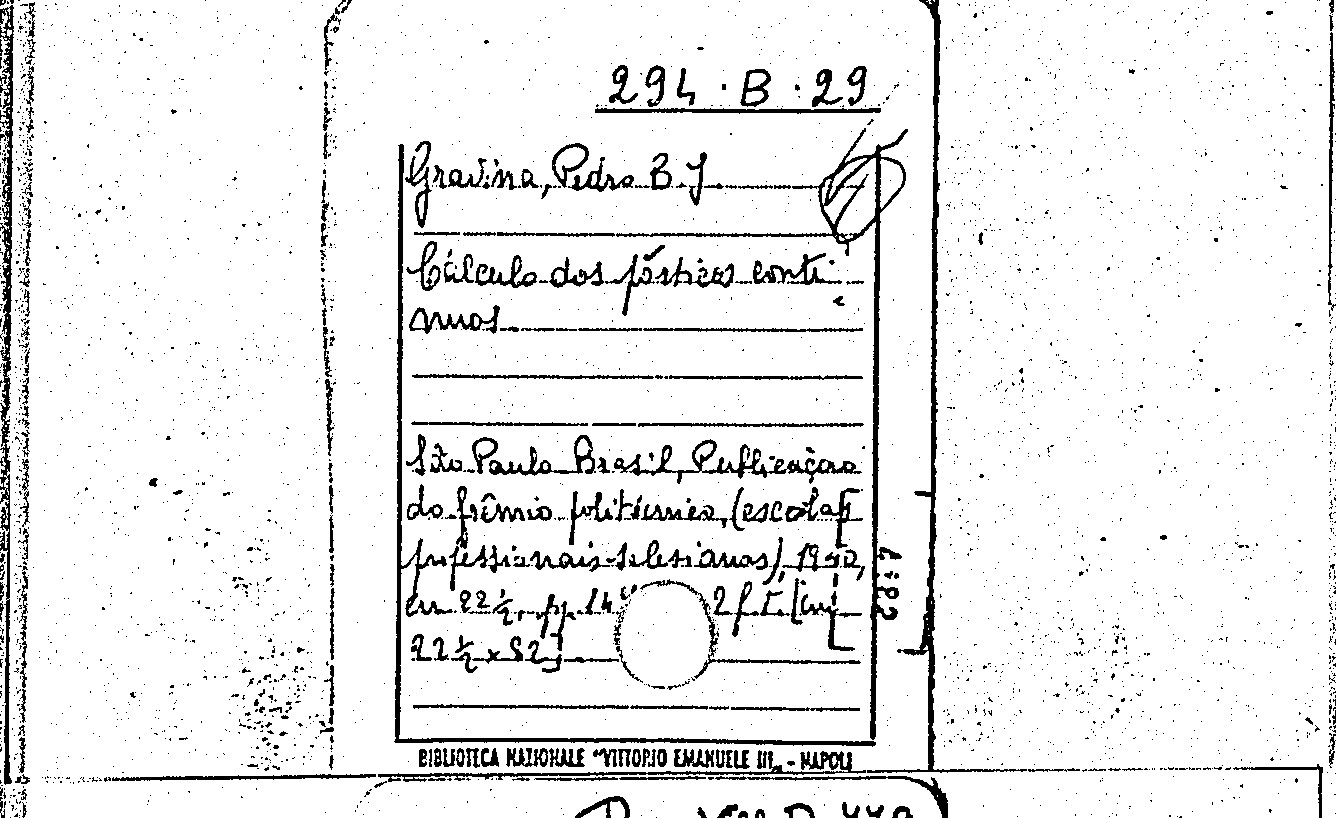 294·B·29
Gravina, Pedro B J.
Cálculo dos pórticos conti
nuos.
São Paulo Brasil, Publicaçoao
do grêmio politécnico, (escolas
professionais salesianas),
cm 22 ½, pp. 2 f. t. [cm
22 ½ x 52].
BIBLIOTECA NAZIONALE "VITTORIO EMANUELE III„ - NAPOLI